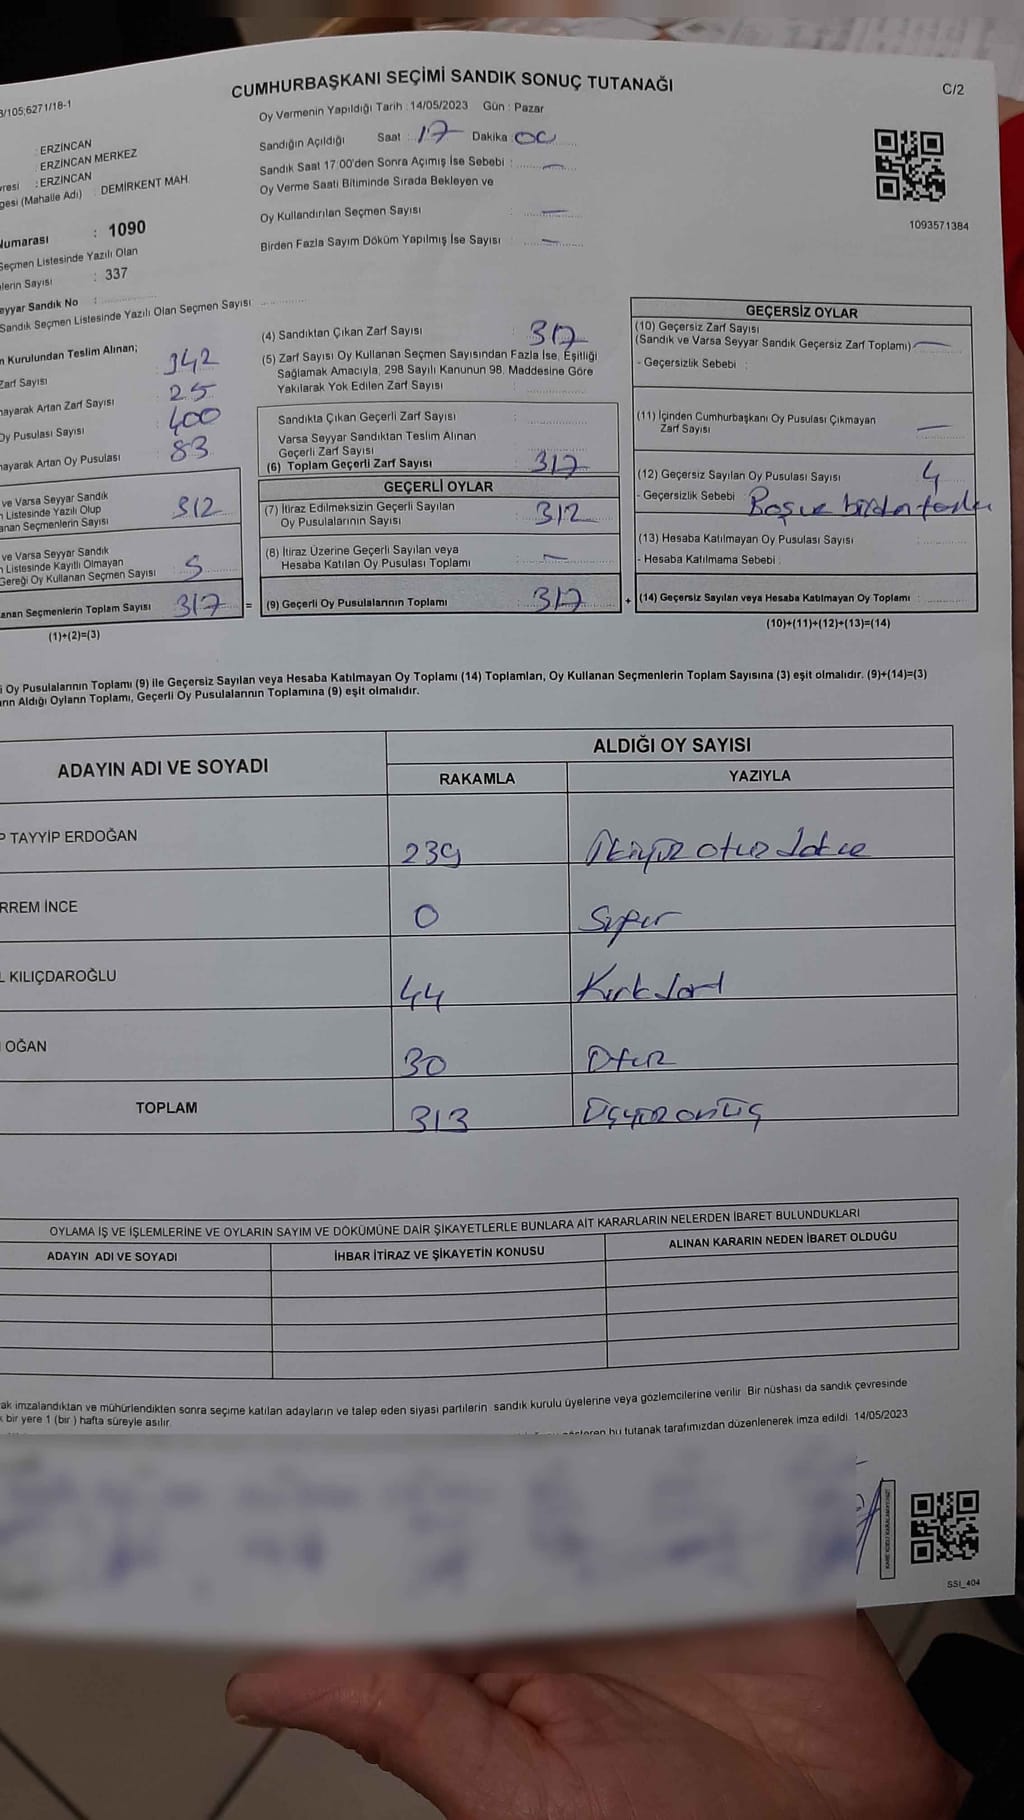 CUMHURBAŞKANI SEÇİMİ SANDIK SONUÇ TUTANAĞI
C/2
/105;6271/18-1
Oy Vermenin Yapıldığı Tarih : 14/05/2023 Gün : Pazar
: ERZİNCAN
: ERZİNCAN MERKEZ
: ERZİNCAN
(Mahalle Adı) : DEMİRKENT MAH.
Sandığın Açıldığı Saat : 17 Dakika : 00
Sandık Saat 17:00'den Sonra Açımış İse Sebebi : —
Oy Verme Saati Bitiminde Sırada Bekleyen ve
Oy Kullandırılan Seçmen Sayısı : —
Birden Fazla Sayım Döküm Yapılmış İse Sayısı : —
1093571384
: 1090
Seçmen Listesinde Yazılı Olan
Sayısı : 337
Sandık No :
Sandık Seçmen Listesinde Yazılı Olan Seçmen Sayısı
Kurulundan Teslim Alınan;
Zarf Sayısı 342
Artan Zarf Sayısı 25
Oy Pusulası Sayısı 400
Artan Oy Pusulası 83
ve Varsa Seyyar Sandık
Listesinde Yazılı Olup
Seçmenlerin Sayısı 312
ve Varsa Seyyar Sandık
Listesinde Kayıtlı Olmayan
Gereği Oy Kullanan Seçmen Sayısı 5
Seçmenlerin Toplam Sayısı 317 =
(1)+(2)=(3)
(4) Sandıktan Çıkan Zarf Sayısı : 317
(5) Zarf Sayısı Oy Kullanan Seçmen Sayısından Fazla İse, Eşitliği
Sağlamak Amacıyla, 298 Sayılı Kanunun 98. Maddesine Göre
Yakılarak Yok Edilen Zarf Sayısı :
Sandıkta Çıkan Geçerli Zarf Sayısı :
Varsa Seyyar Sandıktan Teslim Alınan
Geçerli Zarf Sayısı
(6) Toplam Geçerli Zarf Sayısı : 317
GEÇERLİ OYLAR
(7) İtiraz Edilmeksizin Geçerli Sayılan
Oy Pusulalarının Sayısı : 312
(8) İtiraz Üzerine Geçerli Sayılan veya
Hesaba Katılan Oy Pusulası Toplamı : —
(9) Geçerli Oy Pusulalarının Toplamı : 317 +
GEÇERSİZ OYLAR
(10) Geçersiz Zarf Sayısı
(Sandık ve Varsa Seyyar Sandık Geçersiz Zarf Toplamı) : —
- Geçersizlik Sebebi :
(11) İçinden Cumhurbaşkanı Oy Pusulası Çıkmayan
Zarf Sayısı : —
(12) Geçersiz Sayılan Oy Pusulası Sayısı : 4
- Geçersizlik Sebebi : birden fazla
(13) Hesaba Katılmayan Oy Pusulası Sayısı :
- Hesaba Katılmama Sebebi :
(14) Geçersiz Sayılan veya Hesaba Katılmayan Oy Toplamı :
(10)+(11)+(12)+(13)=(14)
Oy Pusulalarının Toplamı (9) ile Geçersiz Sayılan veya Hesaba Katılmayan Oy Toplamı (14) Toplamları, Oy Kullanan Seçmenlerin Toplam Sayısına (3) eşit olmalıdır. (9)+(14)=(3)
Aldığı Oyların Toplamı, Geçerli Oy Pusulalarının Toplamına (9) eşit olmalıdır.
ADAYIN ADI VE SOYADI
ALDIĞI OY SAYISI
RAKAMLA YAZIYLA
TAYYİP ERDOĞAN 239 İkiyüz otuz dokuz
İNCE 0 Sıfır
KILIÇDAROĞLU 44 Kırkdört
OĞAN 30 Otuz
TOPLAM 313 Üçyüz onüç
OYLAMA İŞ VE İŞLEMLERİNE VE OYLARIN SAYIM VE DÖKÜMÜNE DAİR ŞİKAYETLERLE BUNLARA AİT KARARLARIN NELERDEN İBARET BULUNDUKLARI
ADAYIN ADI VE SOYADI İHBAR İTİRAZ VE ŞİKAYETİN KONUSU ALINAN KARARIN NEDEN İBARET OLDUĞU
imzalandıktan ve mühürlendikten sonra seçime katılan adayların ve talep eden siyasi partilerin sandık kurulu üyelerine veya gözlemcilerine verilir. Bir nüshası da sandık çevresinde
bir yere 1 (bir) hafta süreyle asılır.
bu tutanak tarafımızdan düzenlenerek imza edildi. 14/05/2023
SSI_404